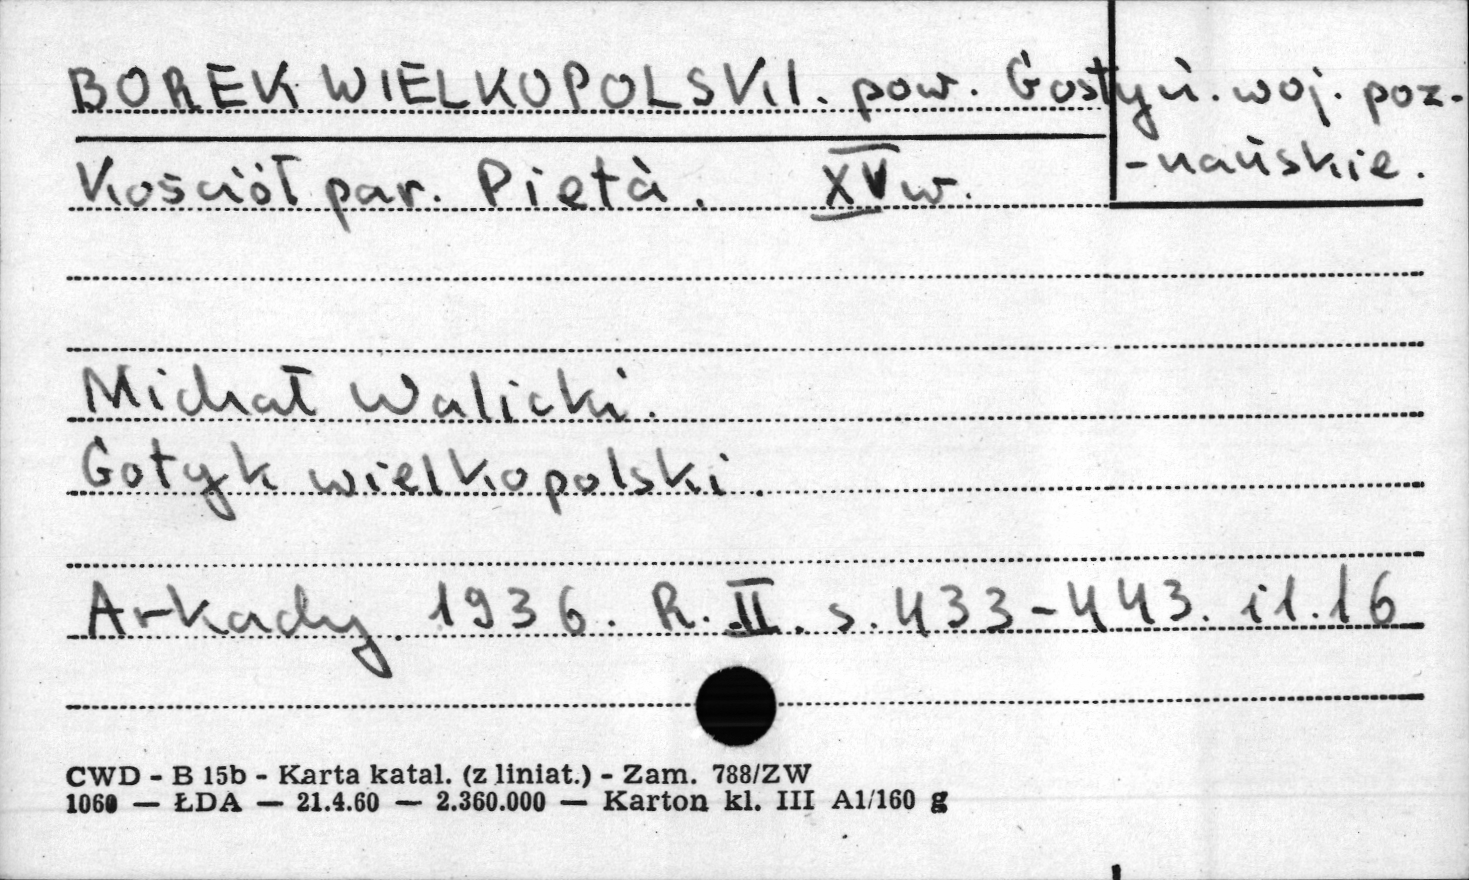 BOREK WIELKOPOLSKI. pow. Gostyń. woj. poz-
-nańskie.
Kościół par. Pietà. XV w.
Michał Walicki.
Gotyk wielkopolski.
Arkady. 1936. R. II. s. 433-443. il. 16
CWD - B 15b - Karta katal. (z liniat.) - Zam. 788/ZW
1060 — ŁDA — 21.4.60 — 2.360.000 — Karton kl. III A1/160 g